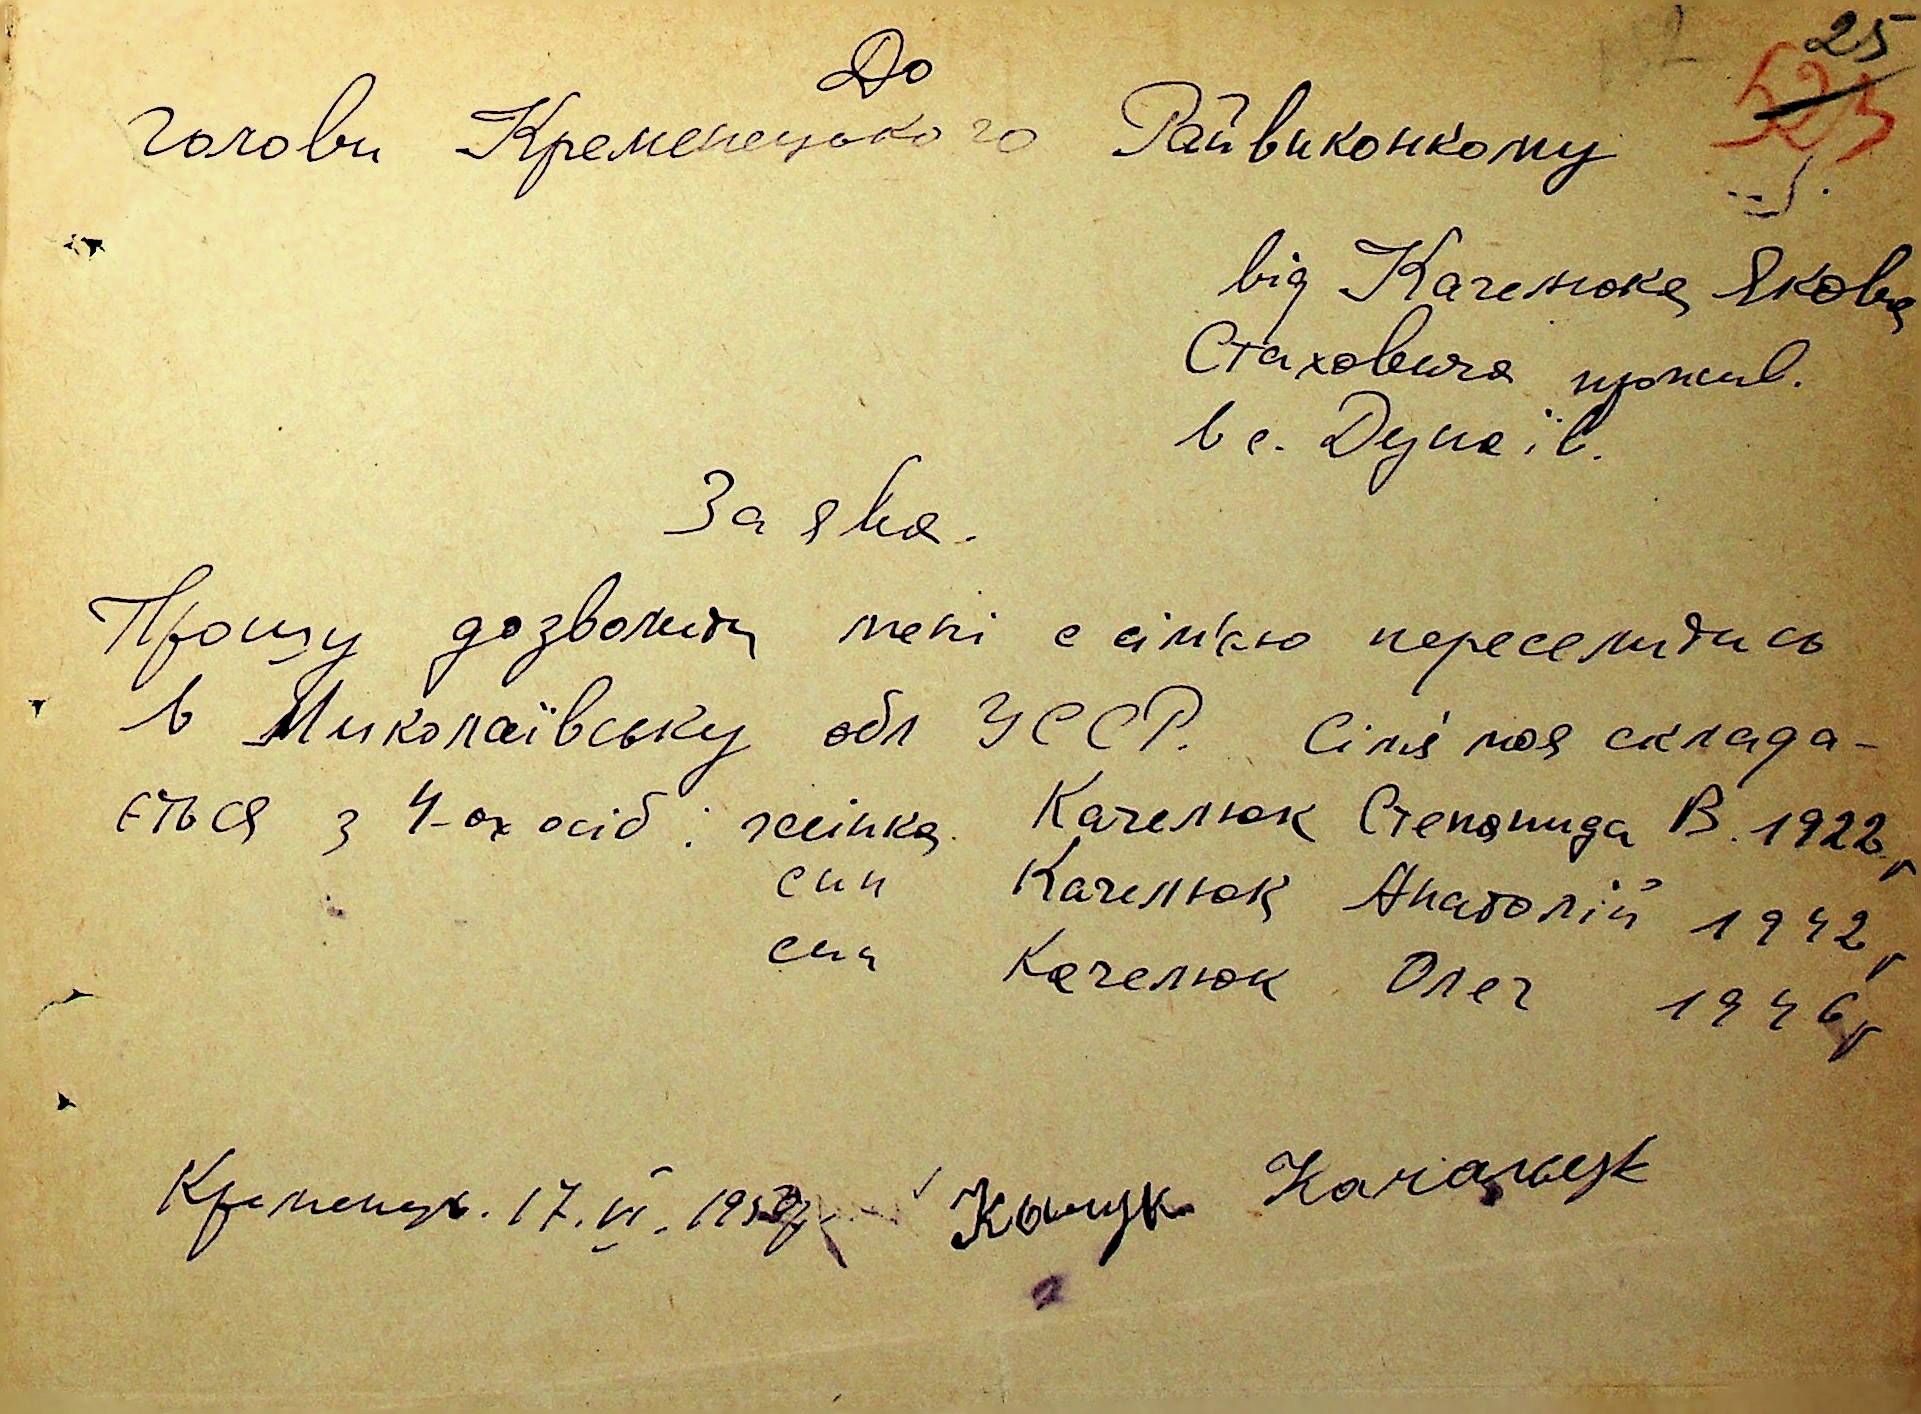 25
523
До
голови Кременецького Райвиконкому
від Качелюка Якова
Стаховича прожив.
в с. Дунаїв.
Заява.
Прошу дозволити мені с сім'єю переселитись
в Миколаївську обл УССР. Сім'я моя склада-
ється з 4-ох осіб: жінка Качелюк Степанида В. 1922 г
син Качелюк Анатолій 1942 г
син Качелюк Олег 1946 г
Кременець. 17.VI.